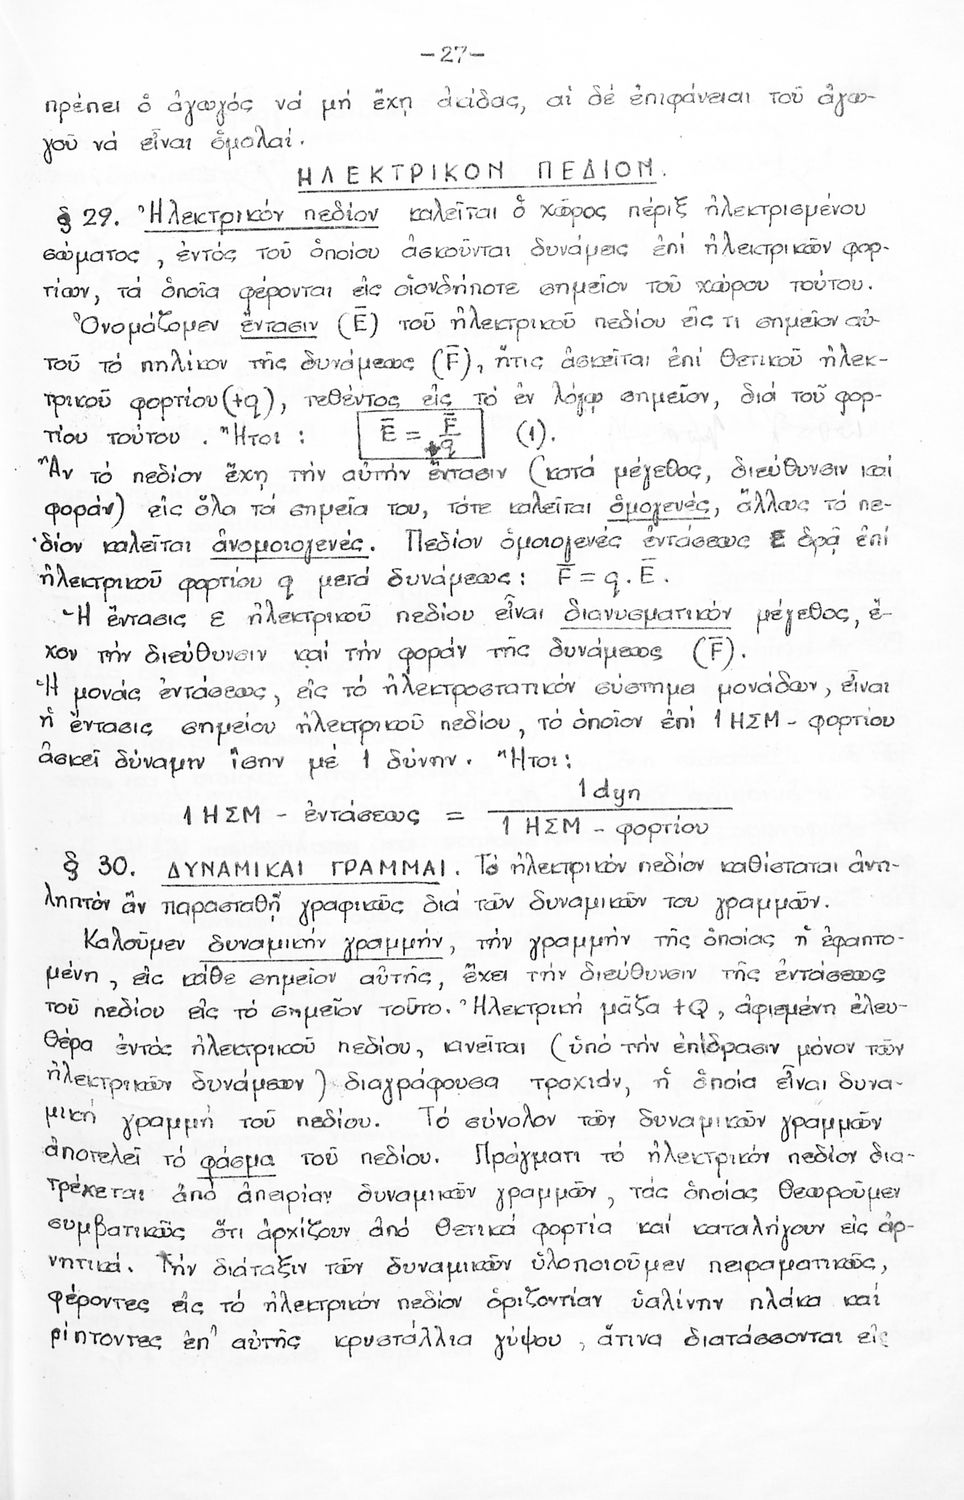 -27-
πρέπει ὁ ἀγωγός νά μή ἔχῃ ἀκίδας, αἱ δέ ἐπιφάνειαι τοῦ ἀγω-
γοῦ νά εἶναι ὁμολαί.
ΗΛΕΚΤΡΙΚΟΝ ΠΕΔΙΟΝ.
§ 29. Ἠλεκτρικόν πεδίον καλεῖται ὁ χῶρος πέριξ ἠλεκτρισμένου
σώματος, ἐντός τοῦ ὁποίου ἀσκοῦνται δυνάμεις ἐπί ἠλεκτρικῶν φορ-
τίων, τά ὁποῖα φέρονται εἰς οἱονδήποτε σημεῖον τοῦ χώρου τούτου.
Ὀνομάζομεν ἔντασιν (Ē) τοῦ ἠλεκτρικοῦ πεδίου εἰς τι σημεῖον αὐ-
τοῦ τό πηλίκον τῆς δυνάμεως (F̄), ἥτις ἀσκεῖται ἐπί θετικοῦ ἠλεκ-
τρικοῦ φορτίου (+q), τεθέντος εἰς τό ἐν λόγῳ σημεῖον, διά τοῦ φορ-
τίου τούτου. Ἤτοι: Ē = F̄/+q (1).
Ἄν τό πεδίον ἔχῃ τήν αὐτήν ἔντασιν (κατά μέγεθος, διεύθυνσιν καί
φοράν) εἰς ὅλα τά σημεῖα του, τότε καλεῖται ὁμογενές, ἄλλως τό πε-
δίον καλεῖται ἀνομοιογενές. Πεδίον ὁμοιογενές ἐντάσεως E δρᾷ ἐπί
ἠλεκτρικοῦ φορτίου q μετά δυνάμεως: F̄ = q. Ē.
Ἡ ἔντασις ε ἠλεκτρικοῦ πεδίου εἶναι διανυσματικόν μέγεθος, ἔ-
χον τήν διεύθυνσιν καί τήν φοράν τῆς δυνάμεως (F̄).
Ἡ μονάς ἐντάσεως, εἰς τό ἠλεκτροστατικόν σύστημα μονάδων, εἶναι
ἡ ἔντασις σημείου ἠλεκτρικοῦ πεδίου, τό ὁποῖον ἐπί 1 ΗΣΜ - φορτίου
ἀσκεῖ δύναμιν ἴσην μέ 1 δύνην. Ἤτοι:
1 ΗΣΜ - ἐντάσεως = 1 dyn / 1 ΗΣΜ - φορτίου
§ 30. ΔΥΝΑΜΙΚΑΙ ΓΡΑΜΜΑΙ. Τό ἠλεκτρικόν πεδίον καθίσταται ἀντι-
ληπτόν ἄν παρασταθῇ γραφικῶς διά τῶν δυναμικῶν του γραμμῶν.
Καλοῦμεν δυναμικήν γραμμήν, τήν γραμμήν τῆς ὁποίας ἡ ἐφαπτο-
μένη, εἰς κάθε σημεῖον αὐτῆς, ἔχει τήν διεύθυνσιν τῆς ἐντάσεως
τοῦ πεδίου εἰς τό σημεῖον τοῦτο. Ἠλεκτρική μᾶζα +Q, ἀφιεμένη ἐλευ-
θέρα ἐντός ἠλεκτρικοῦ πεδίου, κινεῖται (ὑπό τήν ἐπίδρασιν μόνον τῶν
ἠλεκτρικῶν δυνάμεων) διαγράφουσα τροχιάν, ἡ ὁποία εἶναι δυνα-
μική γραμμή τοῦ πεδίου. Τό σύνολον τῶν δυναμικῶν γραμμῶν
ἀποτελεῖ τό φάσμα τοῦ πεδίου. Πράγματι τό ἠλεκτρικόν πεδίον δια-
τρέχεται ἀπό ἀπειρίαν δυναμικῶν γραμμῶν, τάς ὁποίας θεωροῦμεν
συμβατικῶς ὅτι ἀρχίζουν ἀπό θετικά φορτία καί καταλήγουν εἰς ἀρ-
νητικά. Τήν διάταξιν τῶν δυναμικῶν ὑλοποιοῦμεν πειραματικῶς,
φέροντες εἰς τό ἠλεκτρικόν πεδίον ὁριζοντίαν ὑαλίνην πλάκα καί
ρίπτοντες ἐπ' αὐτῆς κρυστάλλια γύψου, ἅτινα διατάσσονται εἰς